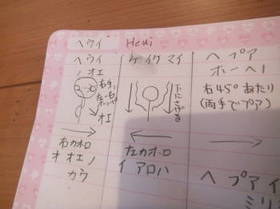 ヘウイ Heui
ヘウイ
ノオエ
右手
オエ
右カホロ
オオエノ
カウ
ケイケマイ
下にさげる
左カホロ
イアロハ
ヘプア
ホーヘノ
右45°あたり
(両手でプア)
ヘプアイ
ミリ